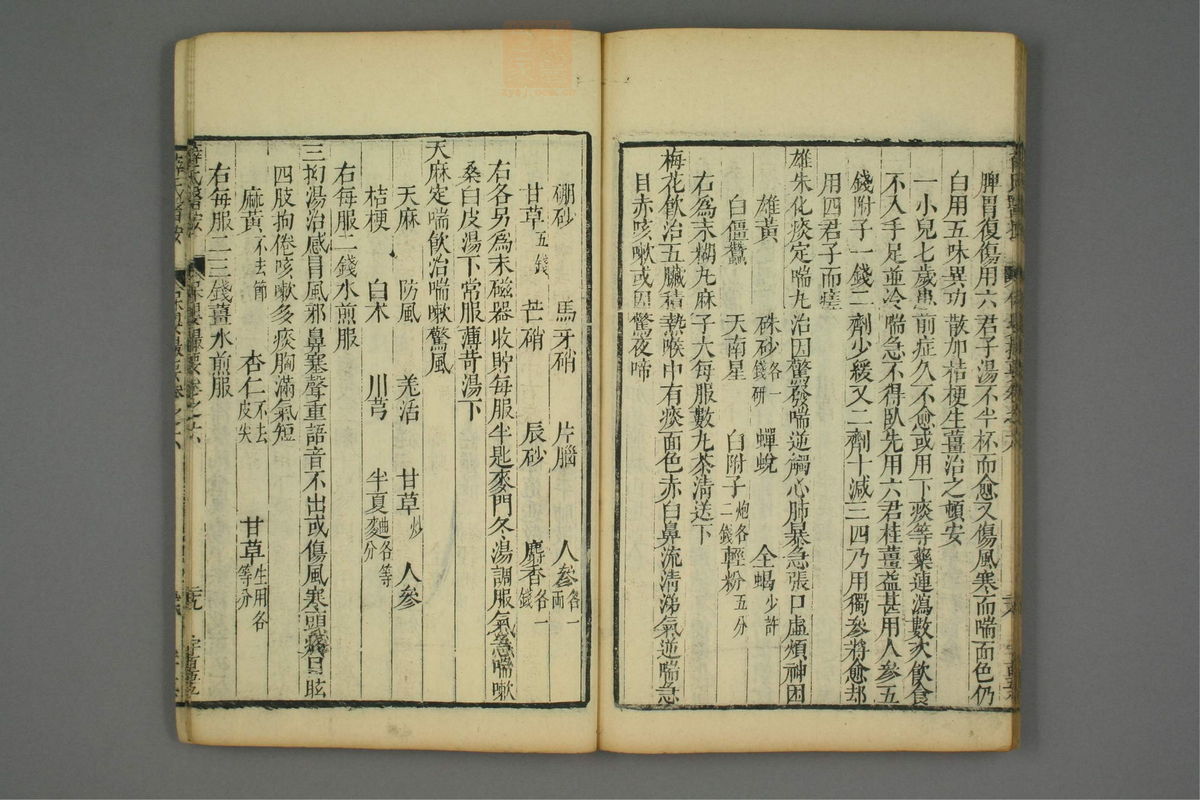 脾胃復傷用六君子湯不半杯而愈又傷風寒而喘面色仍
白用五味異功散加桔梗生薑治之頓安
一小兒七歲患前症久不愈或用下痰等藥連瀉數次飲食
不入手足並冷喘急不得臥先用六君桂薑益甚用人參五
錢附子一錢二劑少緩又二劑十減三四乃用獨參將愈却
用四君子而痊
雄朱化痰定喘丸治因驚發喘逆觸心肺暴急張口虛煩神困
雄黃 硃砂各一錢研 蟬蛻 全蝎少許
白僵蠶 天南星 白附子炮各二錢 輕粉五分
右為末糊丸麻子大每服數丸茶清送下
梅花飲治五臟積熱喉中有痰面色赤白鼻流清涕氣逆喘急
目赤咳嗽或因驚夜啼
硼砂 馬牙硝 片腦 人參各一兩
甘草五錢 芒硝 辰砂 麝香各一錢
右各另為末磁器收貯每服半匙麥門冬湯調服氣急喘嗽
桑白皮湯下常服薄荷湯下
天麻定喘飲治喘嗽驚風
天麻 防風 羌活 甘草炒 人參
桔梗 白朮 川芎 半夏麯各等分
右每服二錢水煎服
三拗湯治感冒風邪鼻塞聲重語音不出或傷風寒頭痛目眩
四肢拘倦咳嗽多痰胸滿氣短
麻黃不去節 杏仁不去皮尖 甘草生用各等分
右每服二三錢薑水煎服